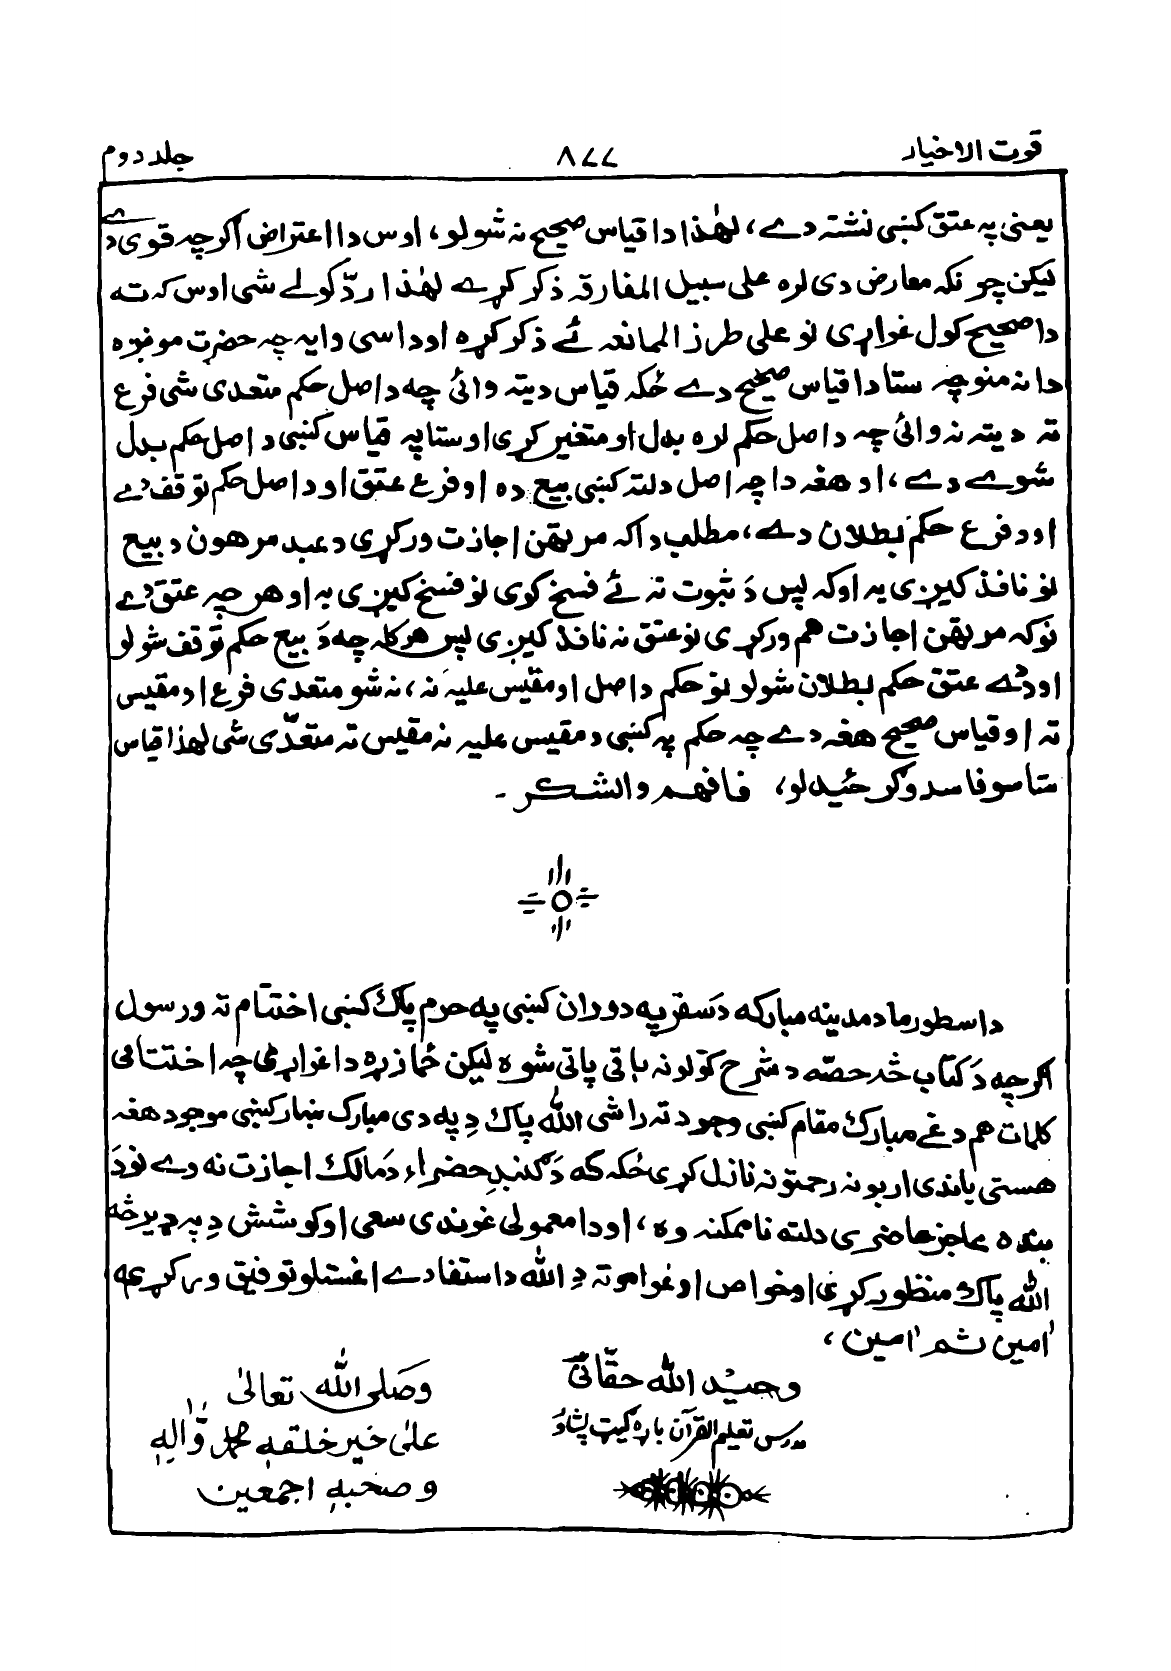 قوت الاخیار ۸۷۷ جلد دوم
یعنی په عتق کښی نشته دے، لهٰذا دا قیاس صحیح نه شولو، اوس دا اعتراض اگرچه قوی دے
لیکن چونکه معارض دی لره علی سبیل المفارقه ذکر کړے لهٰذا ردّ کولے شی اوس که ته
دا صحیح کول غواړی نو علی طرز الممانعه ئے ذکر کړه او داسی وایه چه حضرت مونږه
دا نه منو چه ستا دا قیاس صحیح دے ځکه قیاس دیته وائی چه د اصل حکم متعدی شی فرع
ته دیته نه وائی چه د اصل حکم لره بدل او متغیر کړی او ستا په قیاس کښی د اصل حکم بدل
شوے دے، او هغه دا چه اصل دلته کښی بیع ده او فرع عتق او د اصل حکم توقف دے
او د فرع حکم بطلان دے، مطلب دا که مرتهن اجازت ورکړی د عبد مرهون د بیع
نو نافذ کیږی به او که پس د ثبوت نه ئے فسخ کوی نو فسخ کیږی به او هر چه عتق دے
نو که مرتهن اجازت هم ورکړی نو عتق نه نافذ کیږی پس هر کله چه د بیع حکم توقف شولو
او دے عتق حکم بطلان شولو نو حکم د اصل او مقیس علیه نه، نه شو متعدی فرع او مقیس
ته او قیاس صحیح هغه دے چه حکم په کښی د مقیس علیه نه مقیس ته متعدّی شی لهٰذا قیاس
ستاسو فاسد وګرځیدلو، فافهم والشکر ۔
دا سطور ما د مدینه مبارکه د سفر په دوران کښی په حرم پاک کښی اختتام ته ورسول
اگرچه د کتاب څه حصّه د شرح کولو نه باقی پاتی شوه لیکن ځما زړه دا غواړی چه اختتامی
کلمات هم دغے مبارک مقام کښی وجود ته راشی الله پاک دِ په دی مبارک ښهار کښی موجود هغه
هستی باندی اربونه رحمتونه نازل کړی ځکه که د ګنبدِ حضراء د مالک اجازت نه دے نو د
بنده عاجز حاضری دلته ناممکنه وه، او دا معمولی غوندی سعی او کوشش دِ په ډیر ښه
الله پاک منظور کړی او خواص او عوامو ته دِ الله د استفادے اغستلو توفیق ورکړی
اٰمین ثم اٰمین،
وحید الله حقانی
مدرس تعلیم القرآن باړه ګیټ پشاور
وصلی الله تعالیٰ
علیٰ خیر خلقهٖ محمد وّاٰلهٖ
وصحبهٖ اجمعین